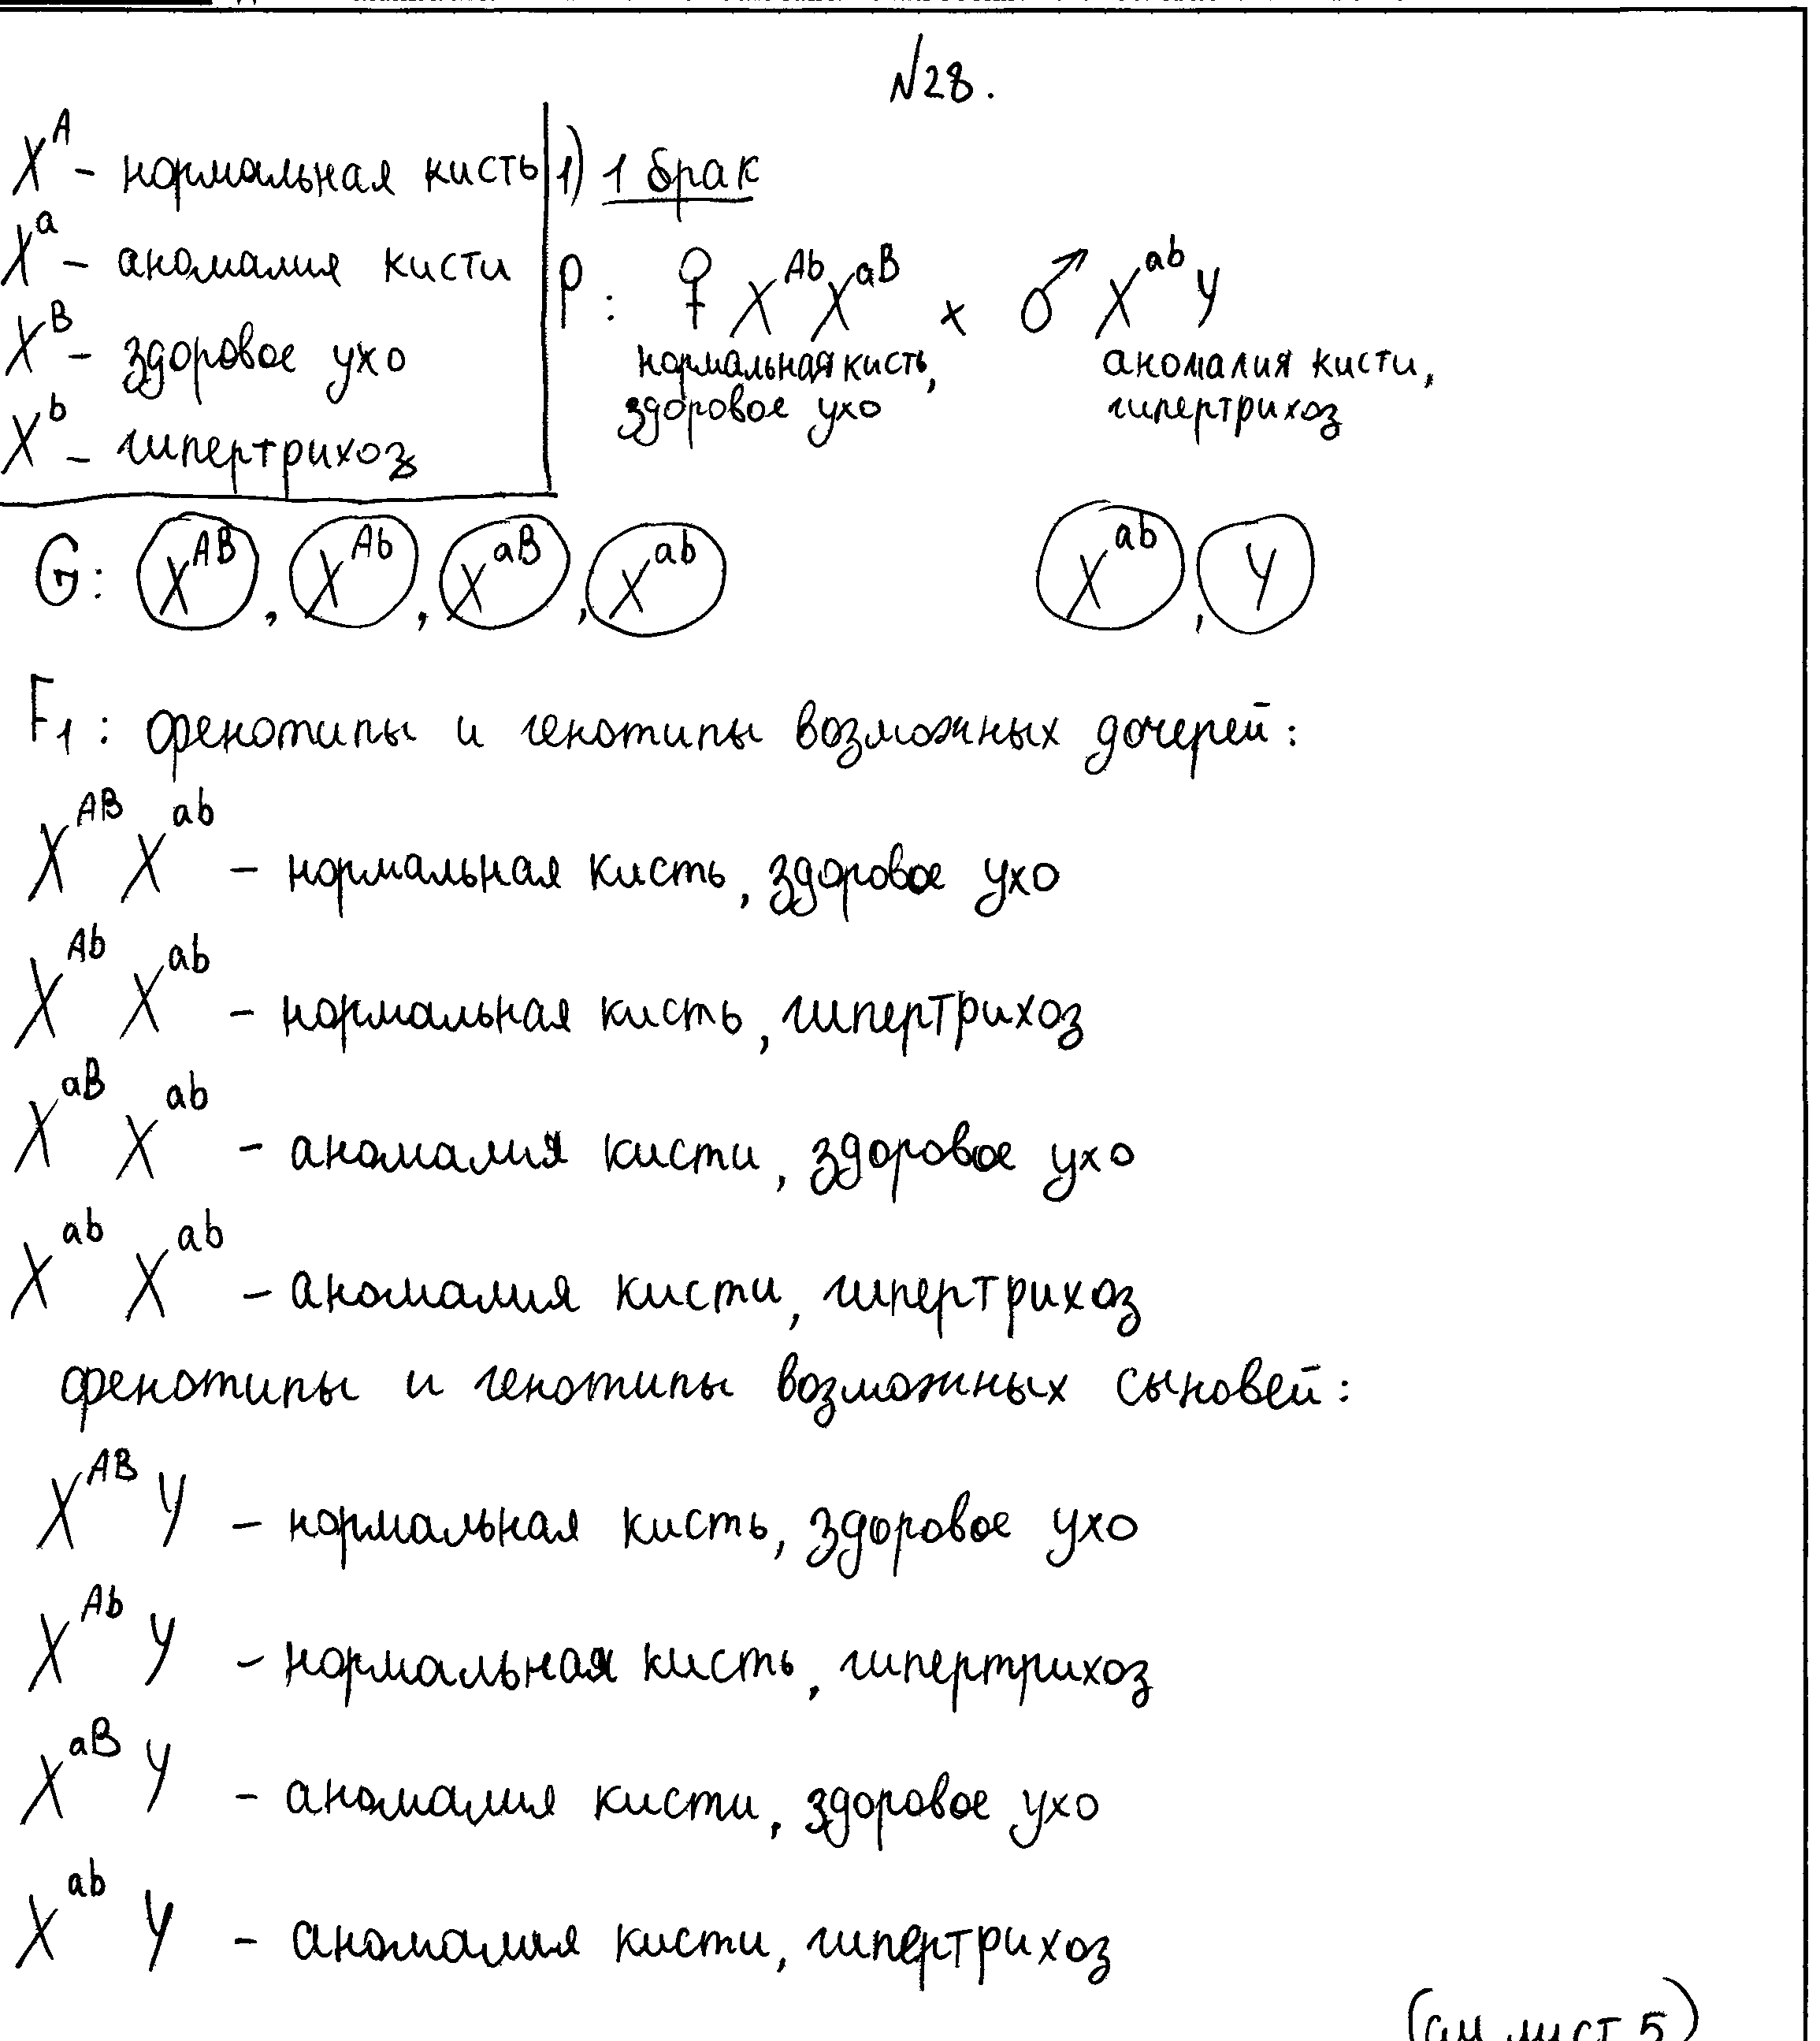 №28.
X^A - нормальная кисть
X^a - аномалия кисти
X^B - здоровое ухо
X^b - гипертрихоз
1) 1 брак
P: ♀ X^Ab X^aB x ♂ X^ab Y
нормальная кисть, аномалия кисти,
здоровое ухо гипертрихоз
G: X^AB, X^Ab, X^aB, X^ab X^ab, Y
F1: фенотипы и генотипы возможных дочерей:
X^AB X^ab - нормальная кисть, здоровое ухо
X^Ab X^ab - нормальная кисть, гипертрихоз
X^aB X^ab - аномалия кисти, здоровое ухо
X^ab X^ab - аномалия кисти, гипертрихоз
фенотипы и генотипы возможных сыновей:
X^AB Y - нормальная кисть, здоровое ухо
X^Ab Y - нормальная кисть, гипертрихоз
X^aB Y - аномалия кисти, здоровое ухо
X^ab Y - аномалия кисти, гипертрихоз
(см лист 5)